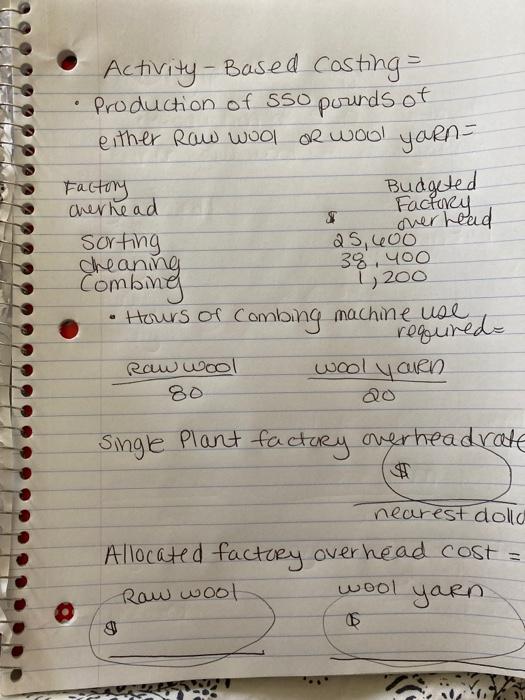 Activity-Based Costing =
• Production of 550 pounds of
either Raw wool OR wool yarn=
Factory overhead
Budgeted Factory overhead
$
Sorting 25,600
cleaning 38,400
Combing 1,200
• Hours of Combing machine use
required=
Raw wool wool yarn
80 20
Single Plant factory overhead rate
$
nearest dolla
Allocated factory overhead cost =
Raw wool wool yarn
$ $